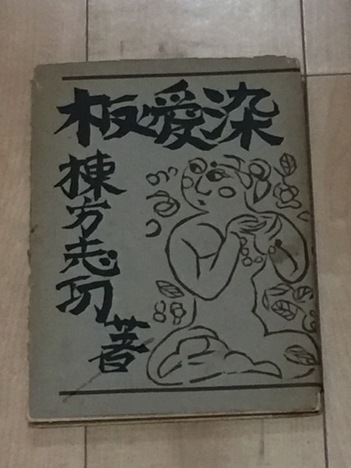 板愛染
棟方志功
著